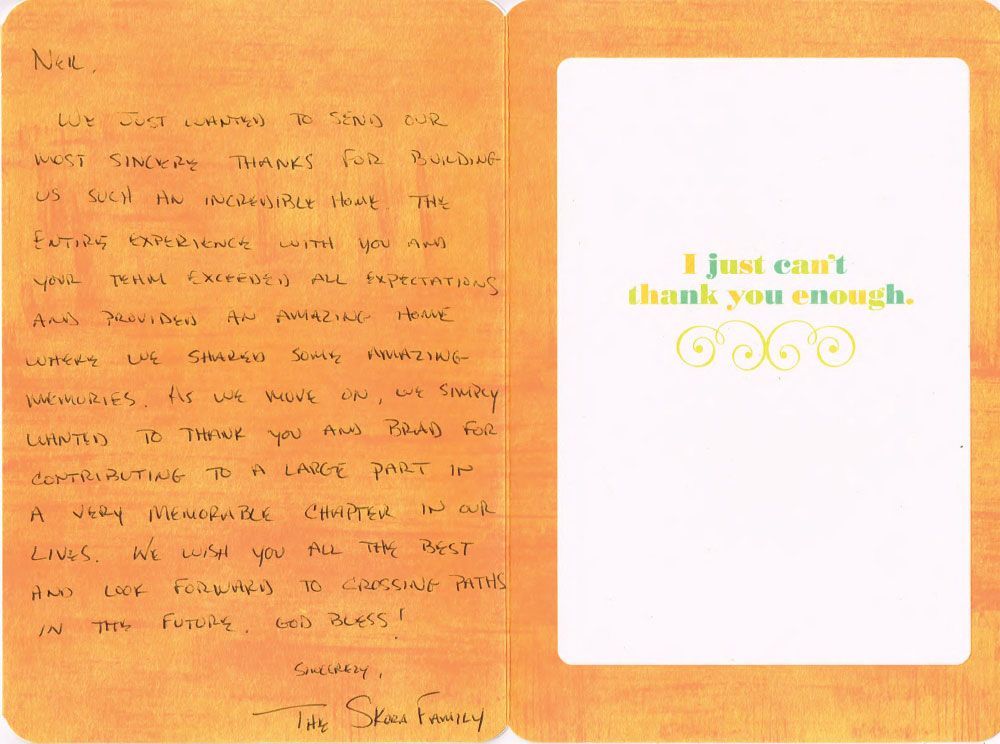 Neil,
We just wanted to send our
most sincere thanks for building
us such an incredible home. The
entire experience with you and
your team exceeded all expectations
and provided an amazing home
where we shared some amazing
memories. As we move on, we simply
wanted to thank you and Brad for
contributing to a large part in
a very memorable chapter in our
lives. We wish you all the best
and look forward to crossing paths
in the future. God Bless!
Sincerely,
The Skora Family
I just can't
thank you enough.